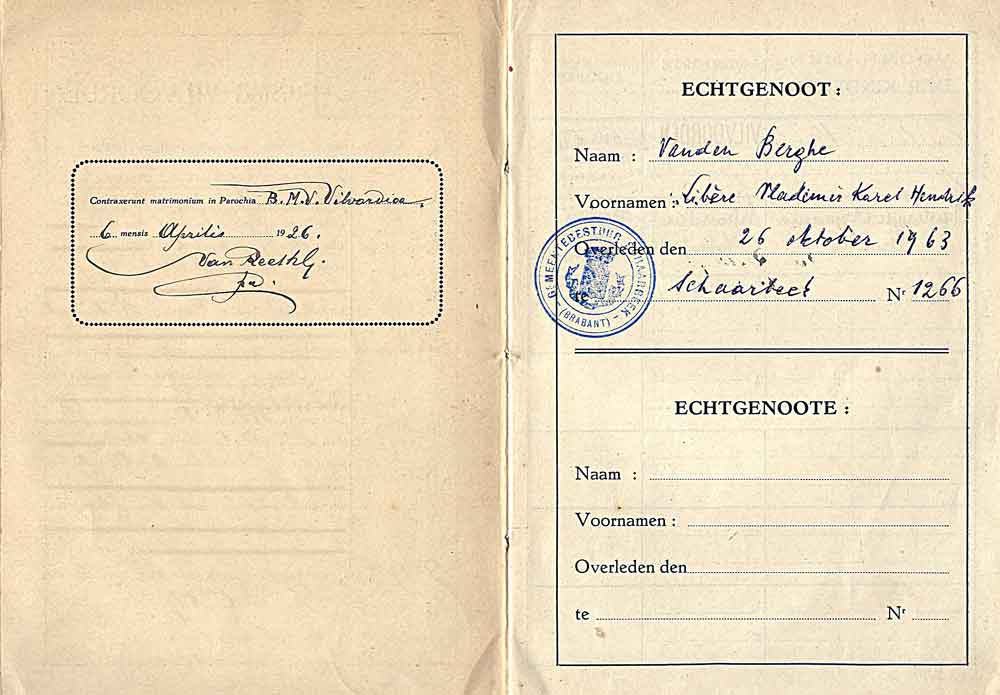 Contraxerunt matrimonium in Parochia B.M.V. Vilvordiae.
6 mensis Aprilis 1926.
pr.
ECHTGENOOT :
Naam : Vanden Berghe
Voornamen : Libère Vladimir Karel Hendrik
Overleden den 26 oktober 1963
te Schaarbeek Nr 1266
GEMEENTEBESTUUR SCHAARBEEK
(BRABANT)
ECHTGENOOTE :
Naam :
Voornamen :
Overleden den
te Nr